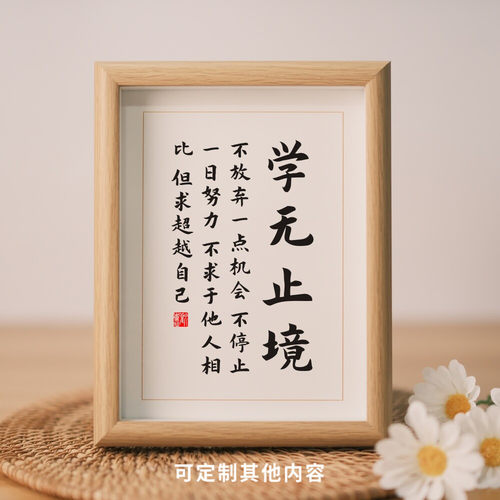 学无止境
不放弃一点机会 不停止
一日努力 不求于他人相
比 但求超越自己
可定制其他内容